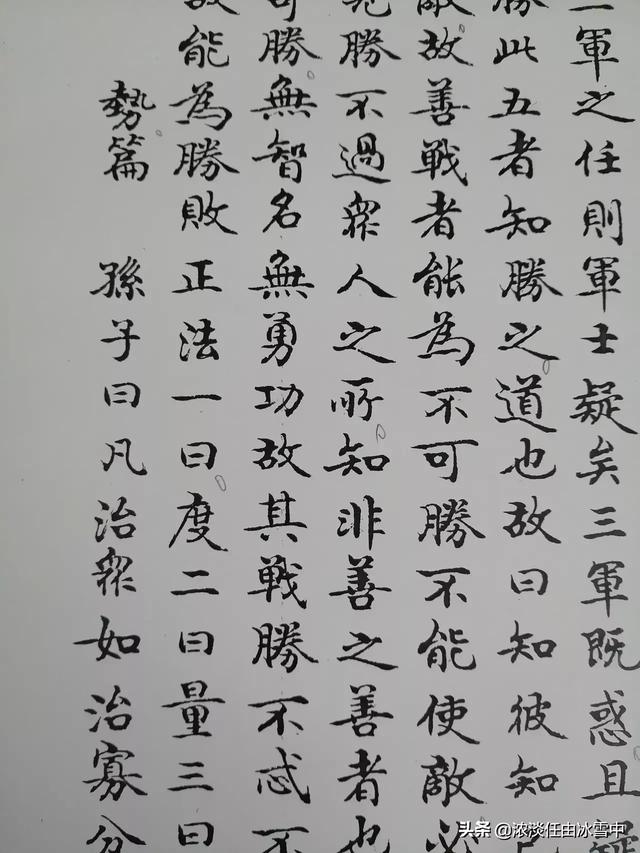 軍之任則軍士疑矣三軍既惑且疑
勝此五者知勝之道也故曰知彼知己
敵故善戰者能為不可勝不能使敵必
見勝不過眾人之所知非善之善者也
奇勝無智名無勇功故其戰勝不忒不
故能為勝敗正法一曰度二曰量三曰
勢篇 孫子曰凡治眾如治寡分
头条 @浓淡任由冰雪中